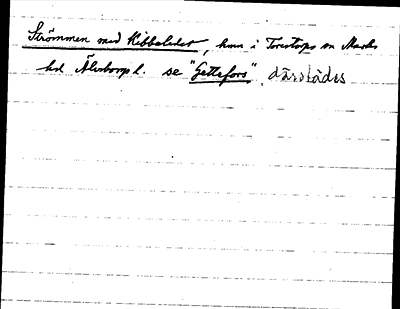 Strömmen med Kibbeledet, hmn i Torestorps sn Marks
hd Älvsborgs l. se "Gettafors", därstädes